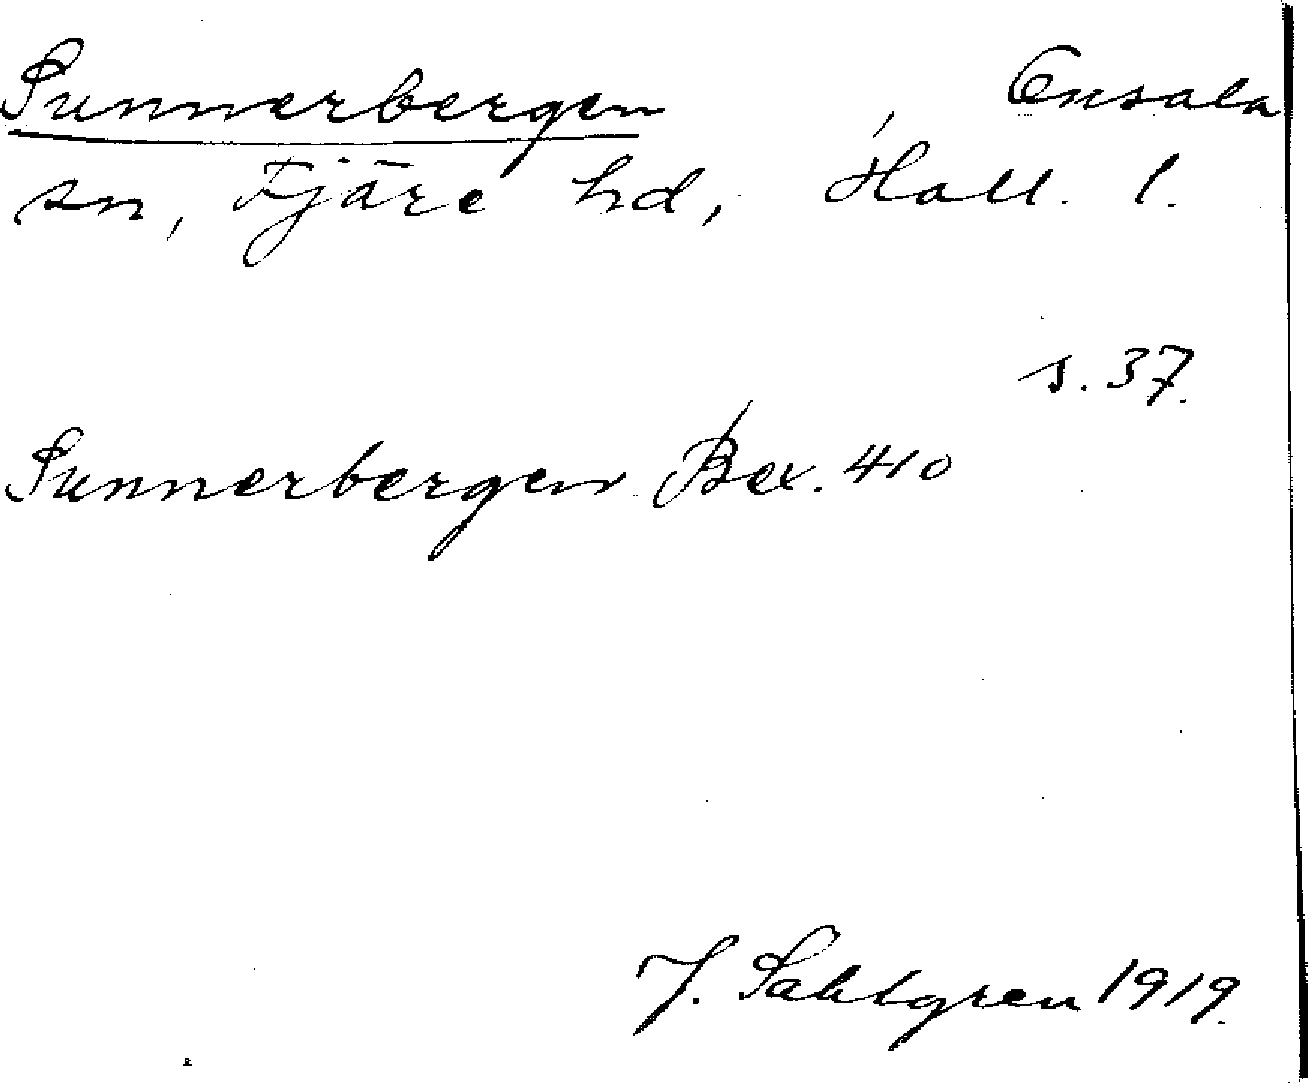 Sunnerbergen Onsala
sn, Fjäre hd, Hall. l.
s. 37.
Sunnerbergen Bex. 410
J. Sahlgren 1919.